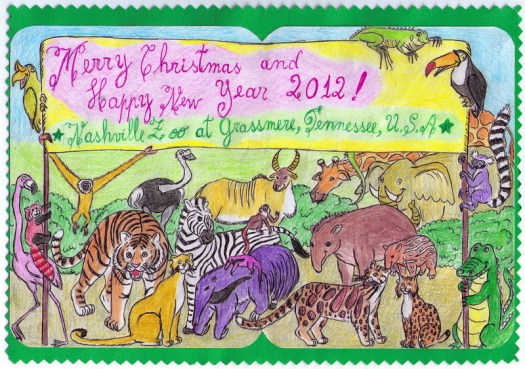 Merry Christmas and
Happy New Year 2012!
Nashville Zoo at Grassmere, Tennessee, U.S.A